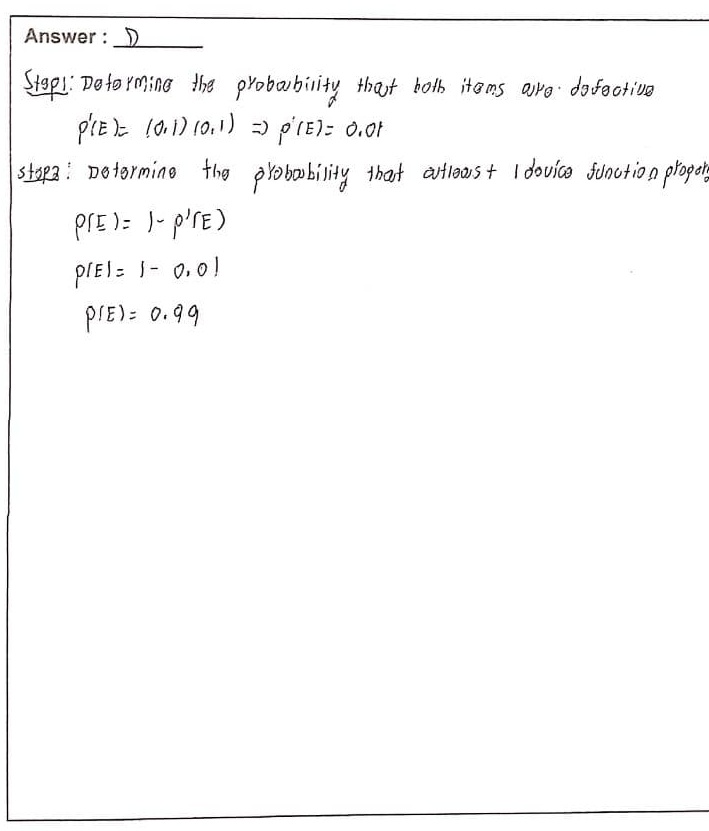 Answer : D
Step1: Determine the probability that both items are defective
p'(E) = (0.1)(0.1) => p'(E) = 0.01
step2: Determine the probability that atleast 1 device function proper
p(E) = 1 - p'(E)
p(E) = 1 - 0.01
p(E) = 0.99